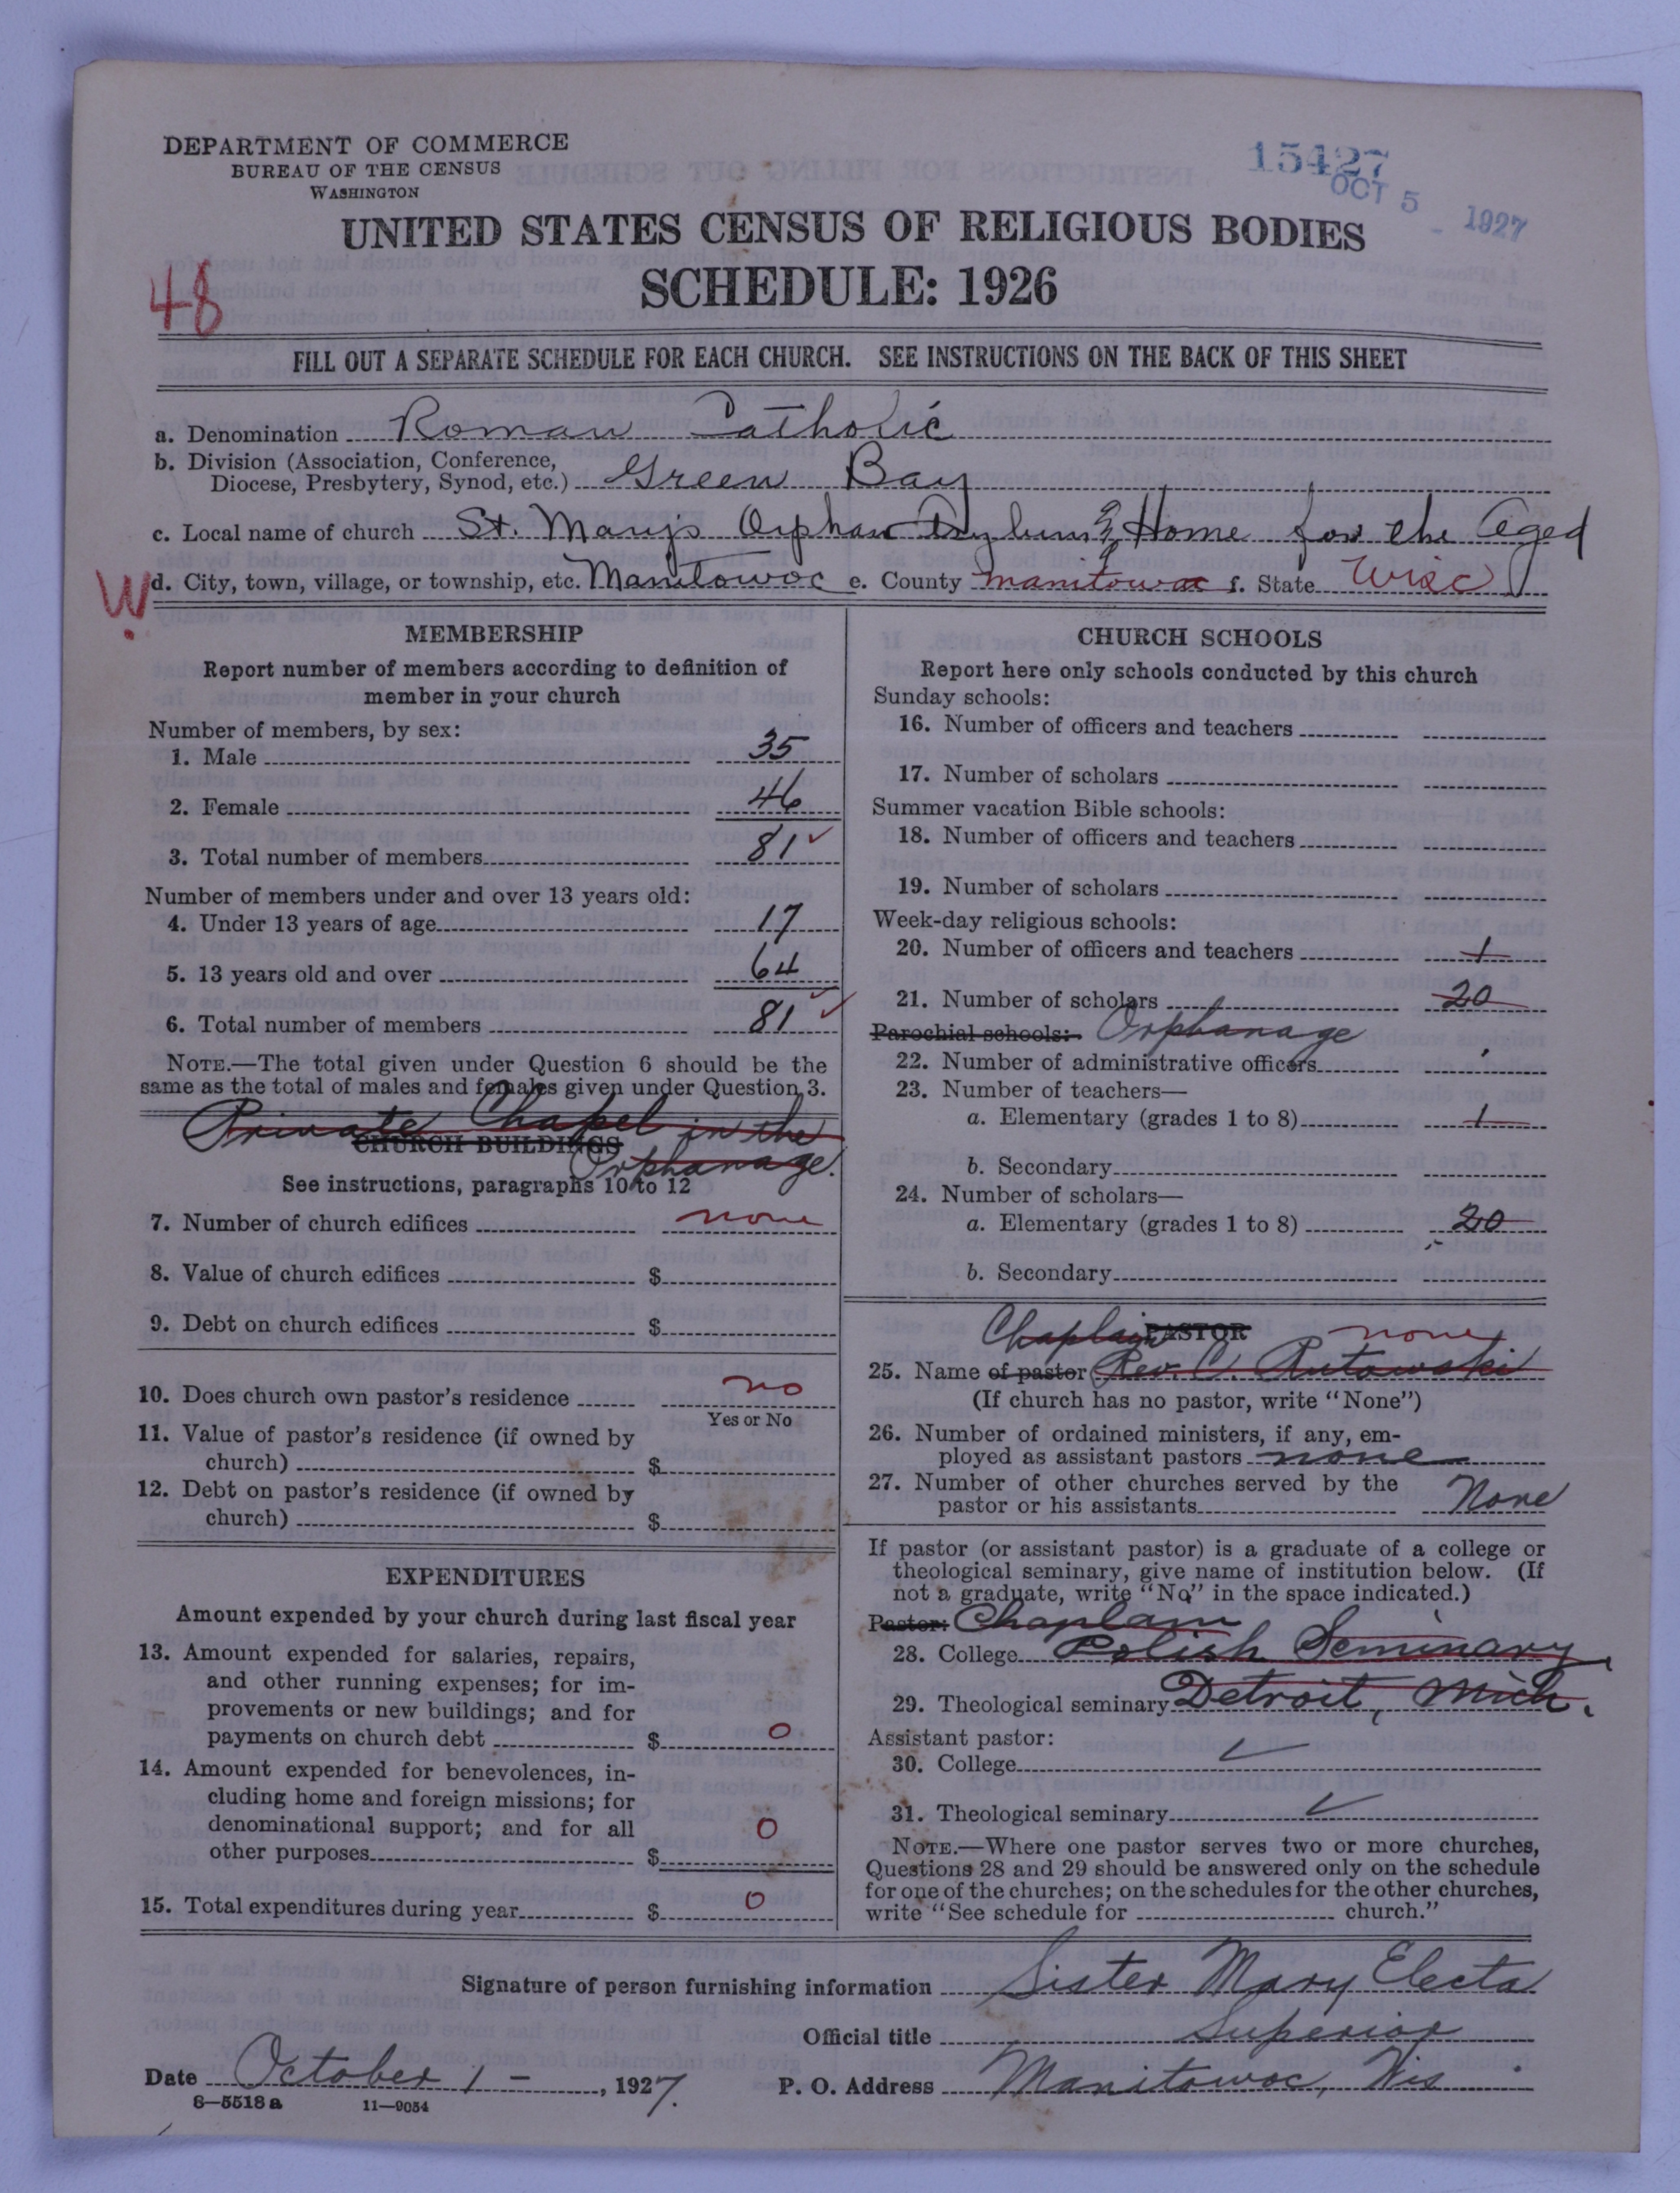 DEPARTMENT OF COMMERCE
BUREAU OF THE CENSUS
WASHINGTON
15427
OCT 5 - 1927
UNITED STATES CENSUS OF RELIGIOUS BODIES
SCHEDULE: 1926
48
FILL OUT A SEPARATE SCHEDULE FOR EACH CHURCH. SEE INSTRUCTIONS ON THE BACK OF THIS SHEET
a. Denomination Roman Catholic
b. Division (Association, Conference,
Diocese, Presbytery, Synod, etc.) Green Bay
c. Local name of church St. Mary's Orphan Asylum & Home for the Aged
W d. City, town, village, or township, etc. Manitowoc e. County Manitowoc f. State Wisc
MEMBERSHIP
Report number of members according to definition of
member in your church
Number of members, by sex:
1. Male 35
2. Female 46
3. Total number of members 81 ✓
Number of members under and over 13 years old:
4. Under 13 years of age 17
5. 13 years old and over 64
6. Total number of members 81 ✓ ✓
NOTE.—The total given under Question 6 should be the
same as the total of males and females given under Question 3.
Private Chapel in the
CHURCH BUILDINGS
Orphanage.
See instructions, paragraphs 10 to 12
7. Number of church edifices none
8. Value of church edifices $
9. Debt on church edifices $
10. Does church own pastor's residence no
Yes or No
11. Value of pastor's residence (if owned by
church) $
12. Debt on pastor's residence (if owned by
church) $
EXPENDITURES
Amount expended by your church during last fiscal year
13. Amount expended for salaries, repairs,
and other running expenses; for im-
provements or new buildings; and for
payments on church debt $ 0
14. Amount expended for benevolences, in-
cluding home and foreign missions; for
denominational support; and for all
other purposes $ 0
15. Total expenditures during year $ 0
CHURCH SCHOOLS
Report here only schools conducted by this church
Sunday schools:
16. Number of officers and teachers
17. Number of scholars
Summer vacation Bible schools:
18. Number of officers and teachers
19. Number of scholars
Week-day religious schools:
20. Number of officers and teachers 1
21. Number of scholars 20
Parochial schools: Orphanage
22. Number of administrative officers
23. Number of teachers—
a. Elementary (grades 1 to 8) 1
b. Secondary
24. Number of scholars—
a. Elementary (grades 1 to 8) 20
b. Secondary
Chaplain PASTOR none
25. Name of pastor Rev. C. Rutowski
(If church has no pastor, write "None")
26. Number of ordained ministers, if any, em-
ployed as assistant pastors none
27. Number of other churches served by the
pastor or his assistants None
If pastor (or assistant pastor) is a graduate of a college or
theological seminary, give name of institution below. (If
not a graduate, write "No" in the space indicated.)
Pastor: Chaplain
28. College Polish Seminary,
29. Theological seminary Detroit, Mich.
Assistant pastor:
30. College ✓
31. Theological seminary ✓
NOTE.—Where one pastor serves two or more churches,
Questions 28 and 29 should be answered only on the schedule
for one of the churches; on the schedules for the other churches,
write "See schedule for church."
Signature of person furnishing information Sister Mary Electa
Official title Superior
Date October 1 - , 1927. P. O. Address Manitowoc, Wis.
8—5518 a 11—9054